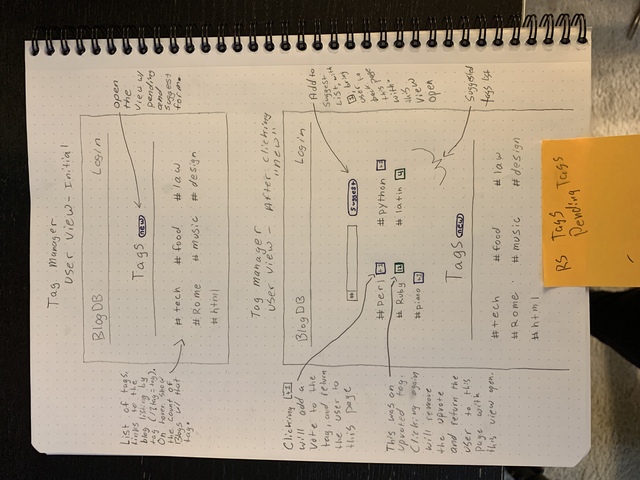 Tag Manager
User View - Initial
BlogDB
Login
Tags new
#tech #food #law
#Rome #music #design
#html
open
the
view w/
pending
and
suggest
form.
List of tags,
links to the
blog listing by
tag (?tag=tag),
On hover, show
the count of
Blogs w/ that
tag.
Tag manager
User view - After clicking
"new"
BlogDB
Login
#
suggest
#perl
#python
#Ruby
#latin
#piano
Tags new
#tech #food #law
#Rome #music #design
#html
Add to
Suggest
List, with
user to
back page
with
this
view
open
Suggested
tags list
Clicking +1
will add a
vote to the
tag, and return
the user to
this page
This was an
upvoted tag.
Clicking again
will remove
the upvote
and return the
user to this
page with
this view open.
RS Tags
Pending Tags